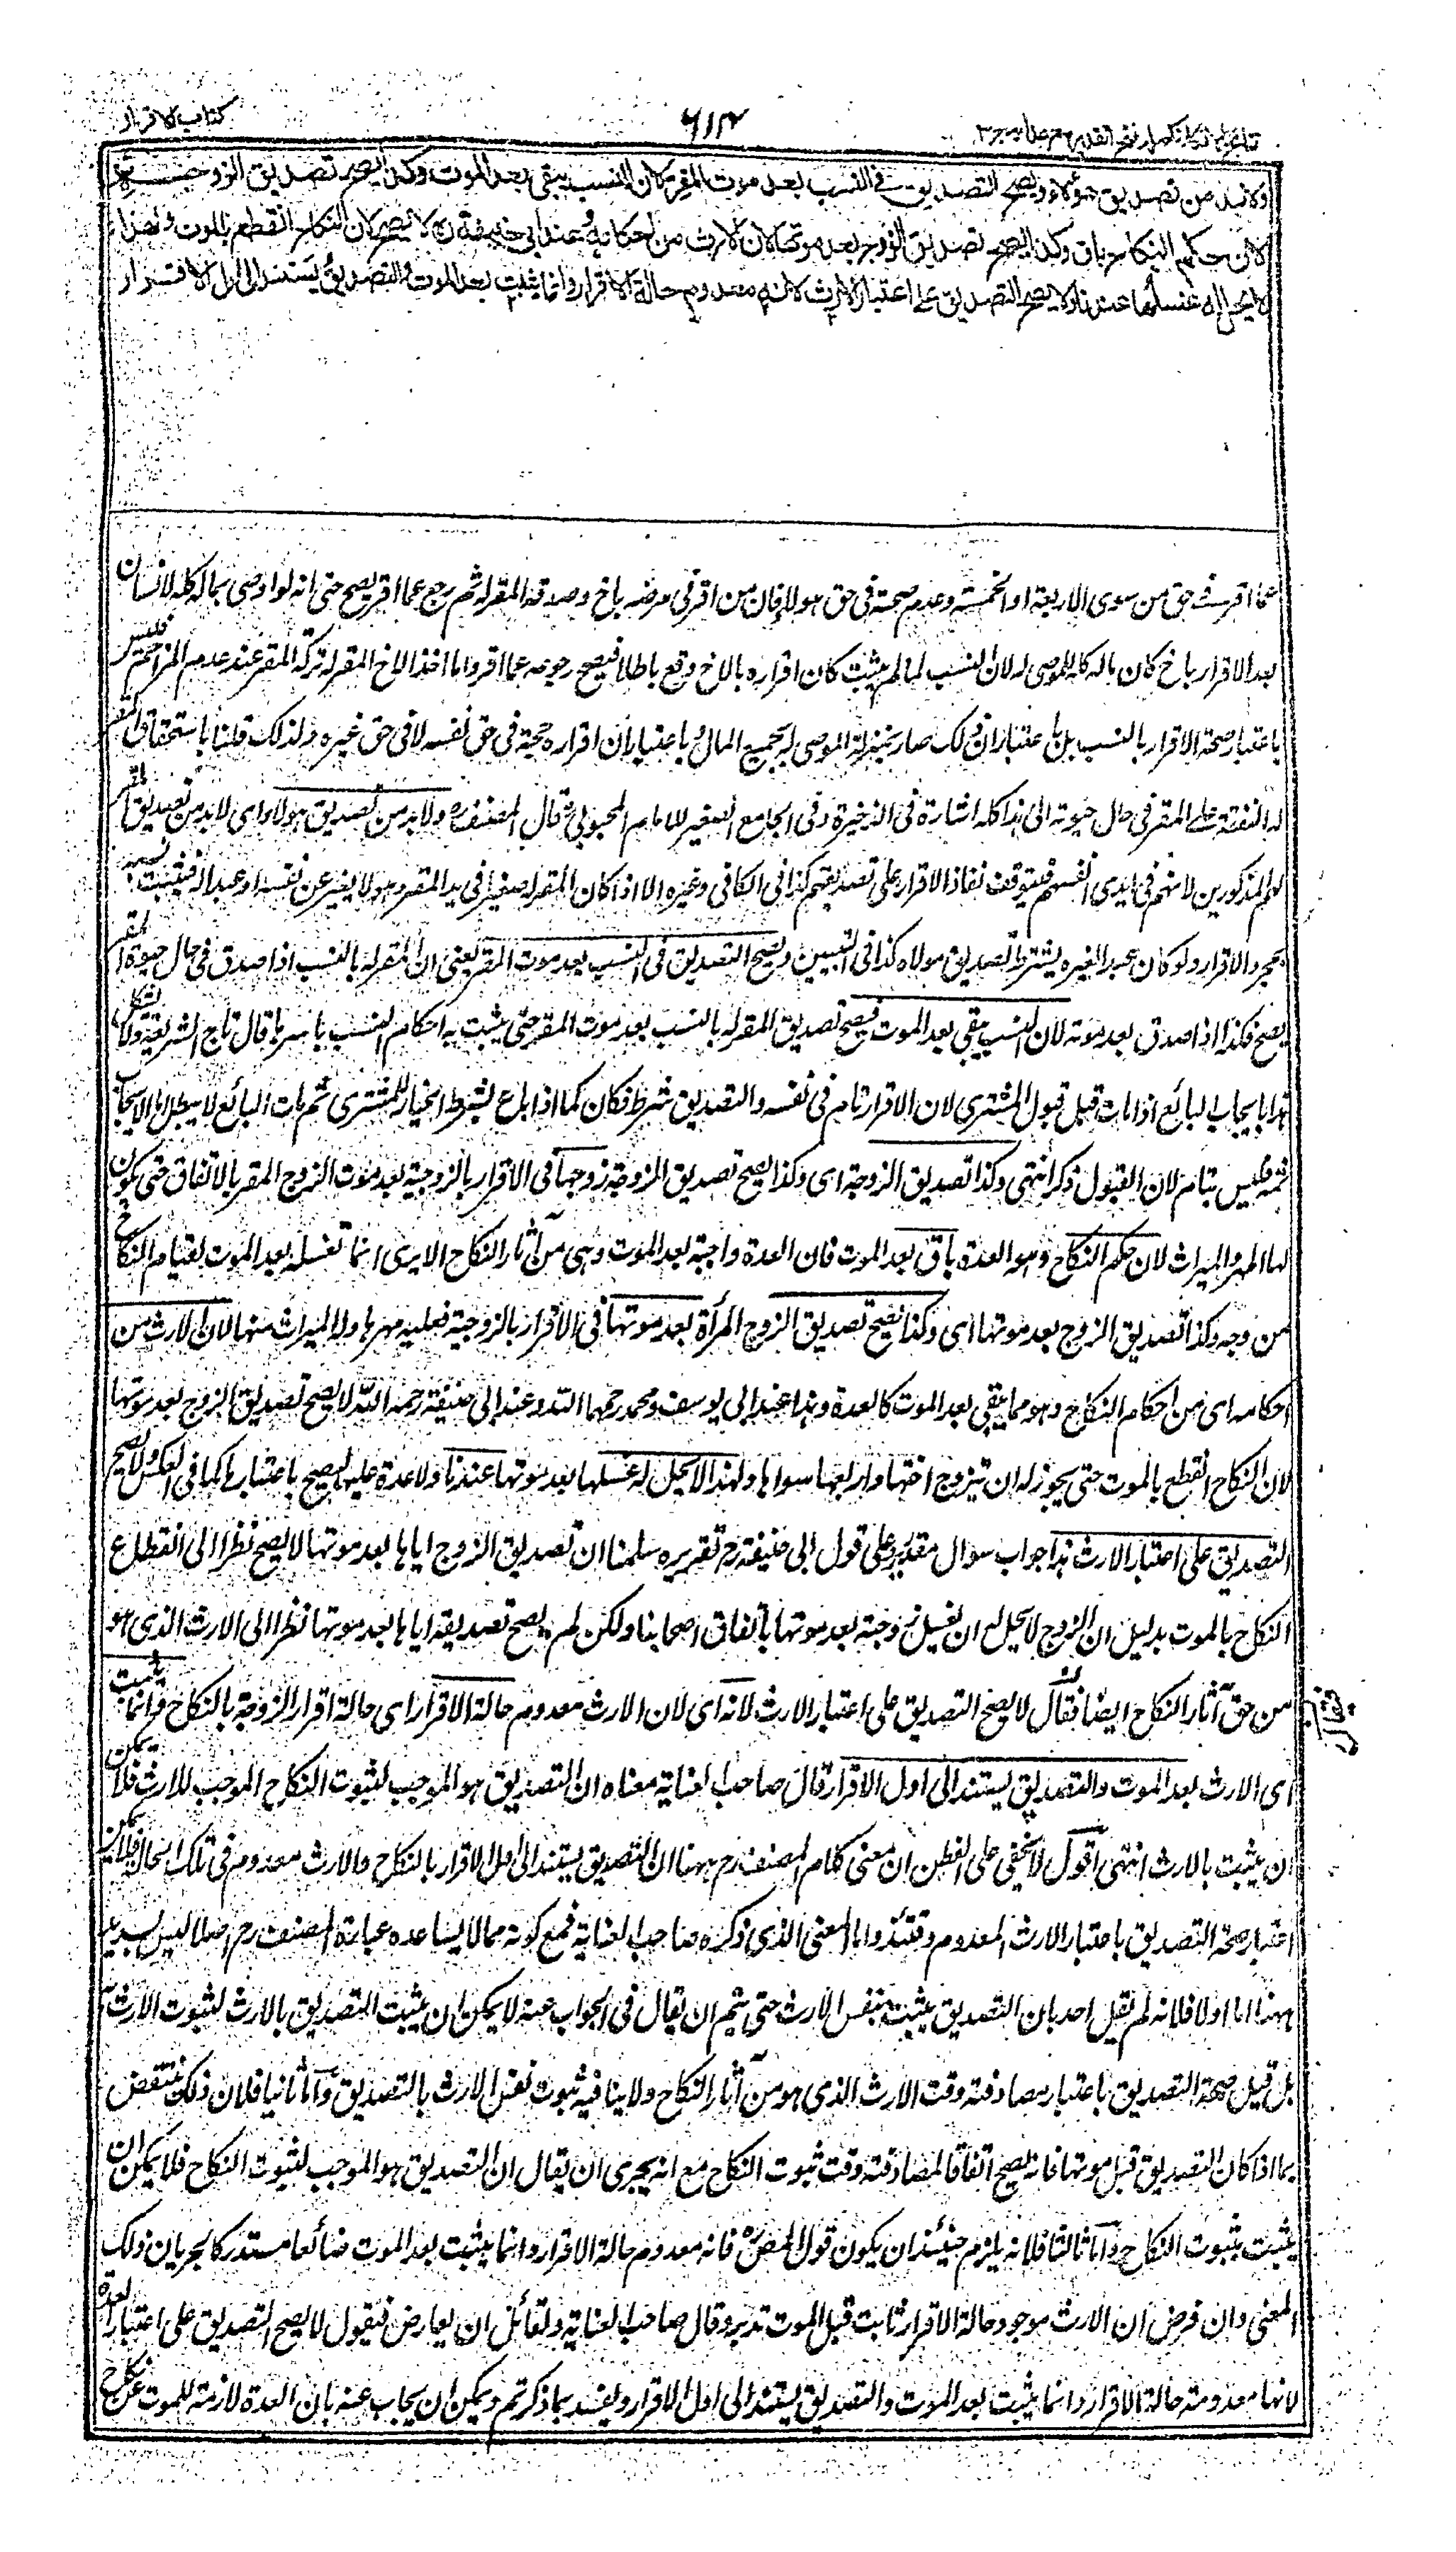 كتاب الاقرار
٦١٢
ولا بد من تصديق هؤلاء ويصح التصديق في النسب بعد موت المقر لان النسب يبقى بعد الموت وكذا يصح تصديق الزوجة
لان حكم النكاح باق وكذا يصح تصديق الزوج بعد موتها لان الارث من احكامه وعند ابي حنيفة رح لا يصح لان النكاح انقطع بالموت ولهذا
لا يحل له غسلها عندنا ولا يصح التصديق على اعتبار الارث لانه معدوم حالة الاقرار وانما يثبت بعد الموت والتصديق يستند الى اول الاقرار
عما اقر في حق من سوى الاربعة او الخمسة وعدم صحته في حق هولاء فان من اقر في مرضه باخ وصدقه المقر له ثم رجع عما اقر يصح حتى انه لو اوصى بماله كله لانسان
بعد الاقرار باخ كان ماله كله للموصى له لان النسب لما لم يثبت كان اقراره بالاخ وقع باطلا فيصح رجوعه عما اقر واما اخذ الاخ المقر له تركة المقر عند عدم المزاحم فليس
باعتبار صحة الاقرار بالنسب بل باعتبار ان ذلك صار بمنزلة الموصى له بجميع المال وباعتبار ان اقراره حجة في حق نفسه لا في حق غيره ولذلك قلنا باستحقاق المقر
له النفقة على المقر في حال حيوته الى هذا كله اشارة في الذخيرة وفي الجامع الصغير للامام المحبوبي رح قال المصنف ره ولا بد من تصديق هولاء اى لا بد من تصديق المقر
لهم المذكورين لانهم في ايدى انفسهم فيتوقف نفاذ الاقرار على تصديقهم كذا في الكافي وغيره الا اذا كان المقر له صغيرا في يد المقر وهو لا يعبر عن نفسه او عبدا له فيثبت نسبه
بمجرد الاقرار ولو كان عبدا لغيره يشترط تصديق مولاه كذا في التبيين ويصح التصديق في النسب بعد موت المقر يعنى ان المقر له بالنسب اذا صدق في حال حيوة المقر
يصح فكذا اذا صدق بعد موته لان النسب يبقى بعد الموت فيصح تصديق المقر له بالنسب بعد موت المقر حتى يثبت به احكام النسب باسرها قال تاج الشريعة ولا يشكل
هذا بايجاب البائع اذا مات قبل قبول المشترى لان الاقرار تام في نفسه والتصديق شرط فكان كما اذا باع بشرط الخيار للمشترى ثم مات البائع لا يبطل اما الايجاب
ثمه فليس بتام لان القبول ذكر انتهى وكذا تصديق الزوجة اى وكذا يصح تصديق الزوجة زوجها في الاقرار بالزوجية بعد موت الزوج المقر بالاتفاق حتى يكون
لها المهر والميراث لان حكم النكاح وهو العدة باق بعد الموت فان العدة واجبة بعد الموت وهى من آثار النكاح الا يرى انها تغسله بعد الموت لقيام النكاح
من وجه وكذا تصديق الزوج بعد موتها اى وكذا يصح تصديق الزوج المرأة بعد موتها في الاقرار بالزوجية فعليه مهرها وله الميراث منها لان الارث من
احكامه اى من احكام النكاح وهو مما يبقى بعد الموت كالعدة وهذا عند ابى يوسف ومحمد رحمهما الله وعند ابى حنيفة رحمه الله لا يصح تصديق الزوج بعد موتها
لان النكاح انقطع بالموت حتى يجوز له ان يتزوج اختها واربعا سواها ولهذا لا يحل له غسلها بعد موتها عندنا ولا عدة عليه ليصح باعتبارها كما في العكس ولا يصح
التصديق على اعتبار الارث هذا جواب سوال مقدر على قول ابى حنيفة رح تقريره سلمنا ان تصديق الزوج اياها بعد موتها لا يصح نظرا الى انقطاع
النكاح بالموت بدليل ان الزوج لا يحل له ان يغسل زوجته بعد موتها باتفاق اصحابنا ولكن لم لم يصح تصديقه اياها بعد موتها نظرا الى الارث الذى هو
من حق آثار النكاح ايضا فقال لا يصح التصديق على اعتبار الارث لانه اى لان الارث معدوم حالة الاقرار اى حالة اقرار الزوجة بالنكاح وانما يثبت
اى الارث بعد الموت والتصديق يستند الى اول الاقرار قال صاحب العناية معناه ان التصديق هو الموجب لثبوت النكاح الموجب للارث فلا يمكن
ان يثبت بالارث انتهى اقول لا يخفى على الفطن ان معنى كلام المصنف رح ههنا ان التصديق يستند الى اول الاقرار بالنكاح والارث معدوم في تلك الحال فلا يمكن
اعتبار صحة التصديق باعتبار الارث المعدوم وقتئذ واما المعنى الذى ذكره صاحب العناية فمع كونه مما لا يساعده عبارة المصنف رح اصلا ليس بسديد
ههنا اما اولا فلانه لم يقل احد بان التصديق يثبت بنفس الارث حتى يتم ان يقال في الجواب عنه لا يمكن ان يثبت التصديق بالارث لثبوت الارث
بل قيل صحة التصديق باعتبار مصادفته وقت الارث الذى هو من آثار النكاح ولا ينافيه ثبوت نفس الارث بالتصديق واما ثانيا فلان ذلك ينتقض
بما اذا كان التصديق قبل موتها فانه يصح اتفاقا لمصادفته وقت ثبوت النكاح مع انه يجرى ان يقال ان التصديق هو الموجب لثبوت النكاح فلا يمكن ان
يثبت بثبوت النكاح واما ثالثا فلانه يلزم حينئذ ان يكون قول المص ره فانه معدوم حالة الاقرار وانما يثبت بعد الموت ضائعا مستدركا لجريان ذلك
المعنى وان فرض ان الارث موجود حالة الاقرار ثابت قبل الموت تدبر وقال صاحب العناية ولقائل ان يعارض فيقول لا يصح التصديق على اعتبار العدة
لانها معدومة حالة الاقرار وانما يثبت بعد الموت والتصديق يستند الى اول الاقرار ويفسد بما ذكرتم ويمكن ان يجاب عنه بان العدة لازمة للموت عن نكاح